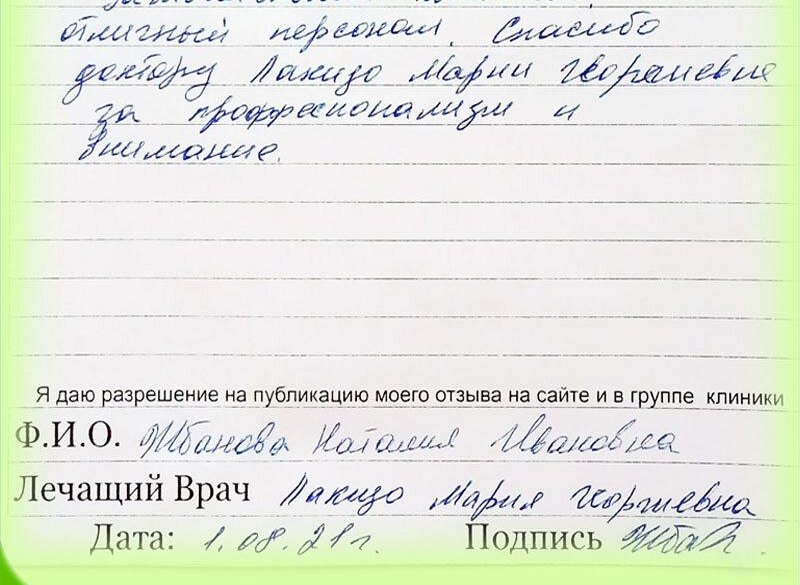 отличный персонал. Спасибо
доктору Лакизо Марии Георгиевне
за профессионализм и
внимание.
Я даю разрешение на публикацию моего отзыва на сайте и в группе клиники
Ф.И.О. Жбанова Наталия Ивановна
Лечащий Врач Лакизо Мария Георгиевна
Дата: 1.08.21г. Подпись